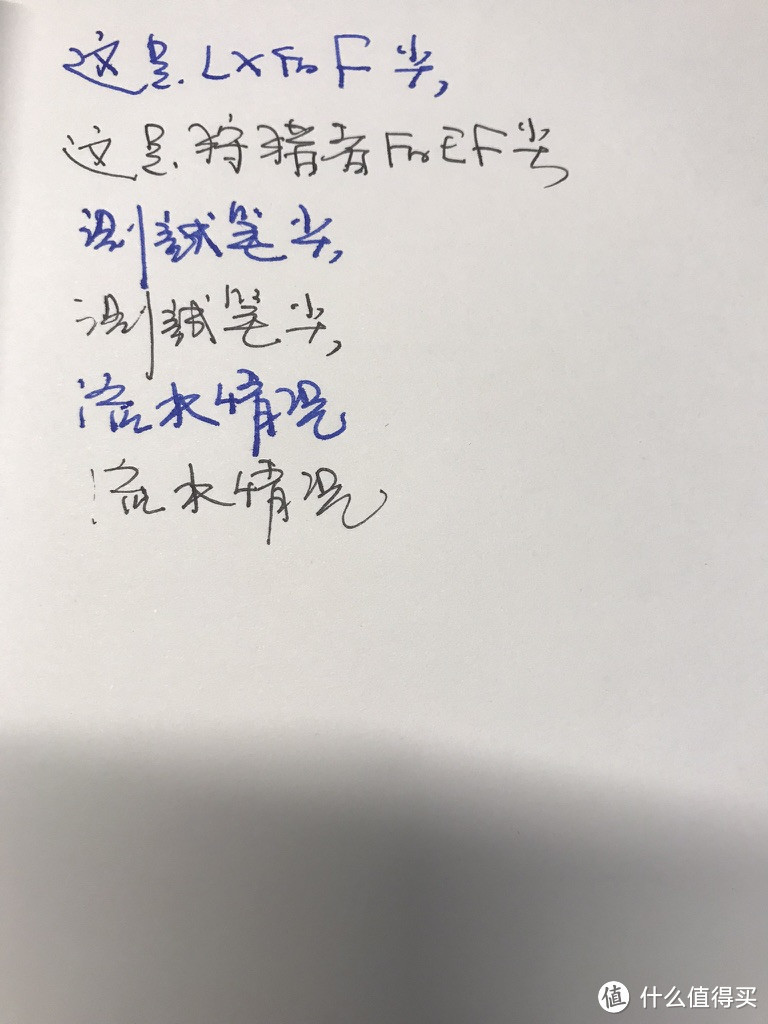 这是LX的F尖,
这是狩猎者的EF尖
测试笔尖,
测试笔尖,
流水情况
流水情况
值 什么值得买